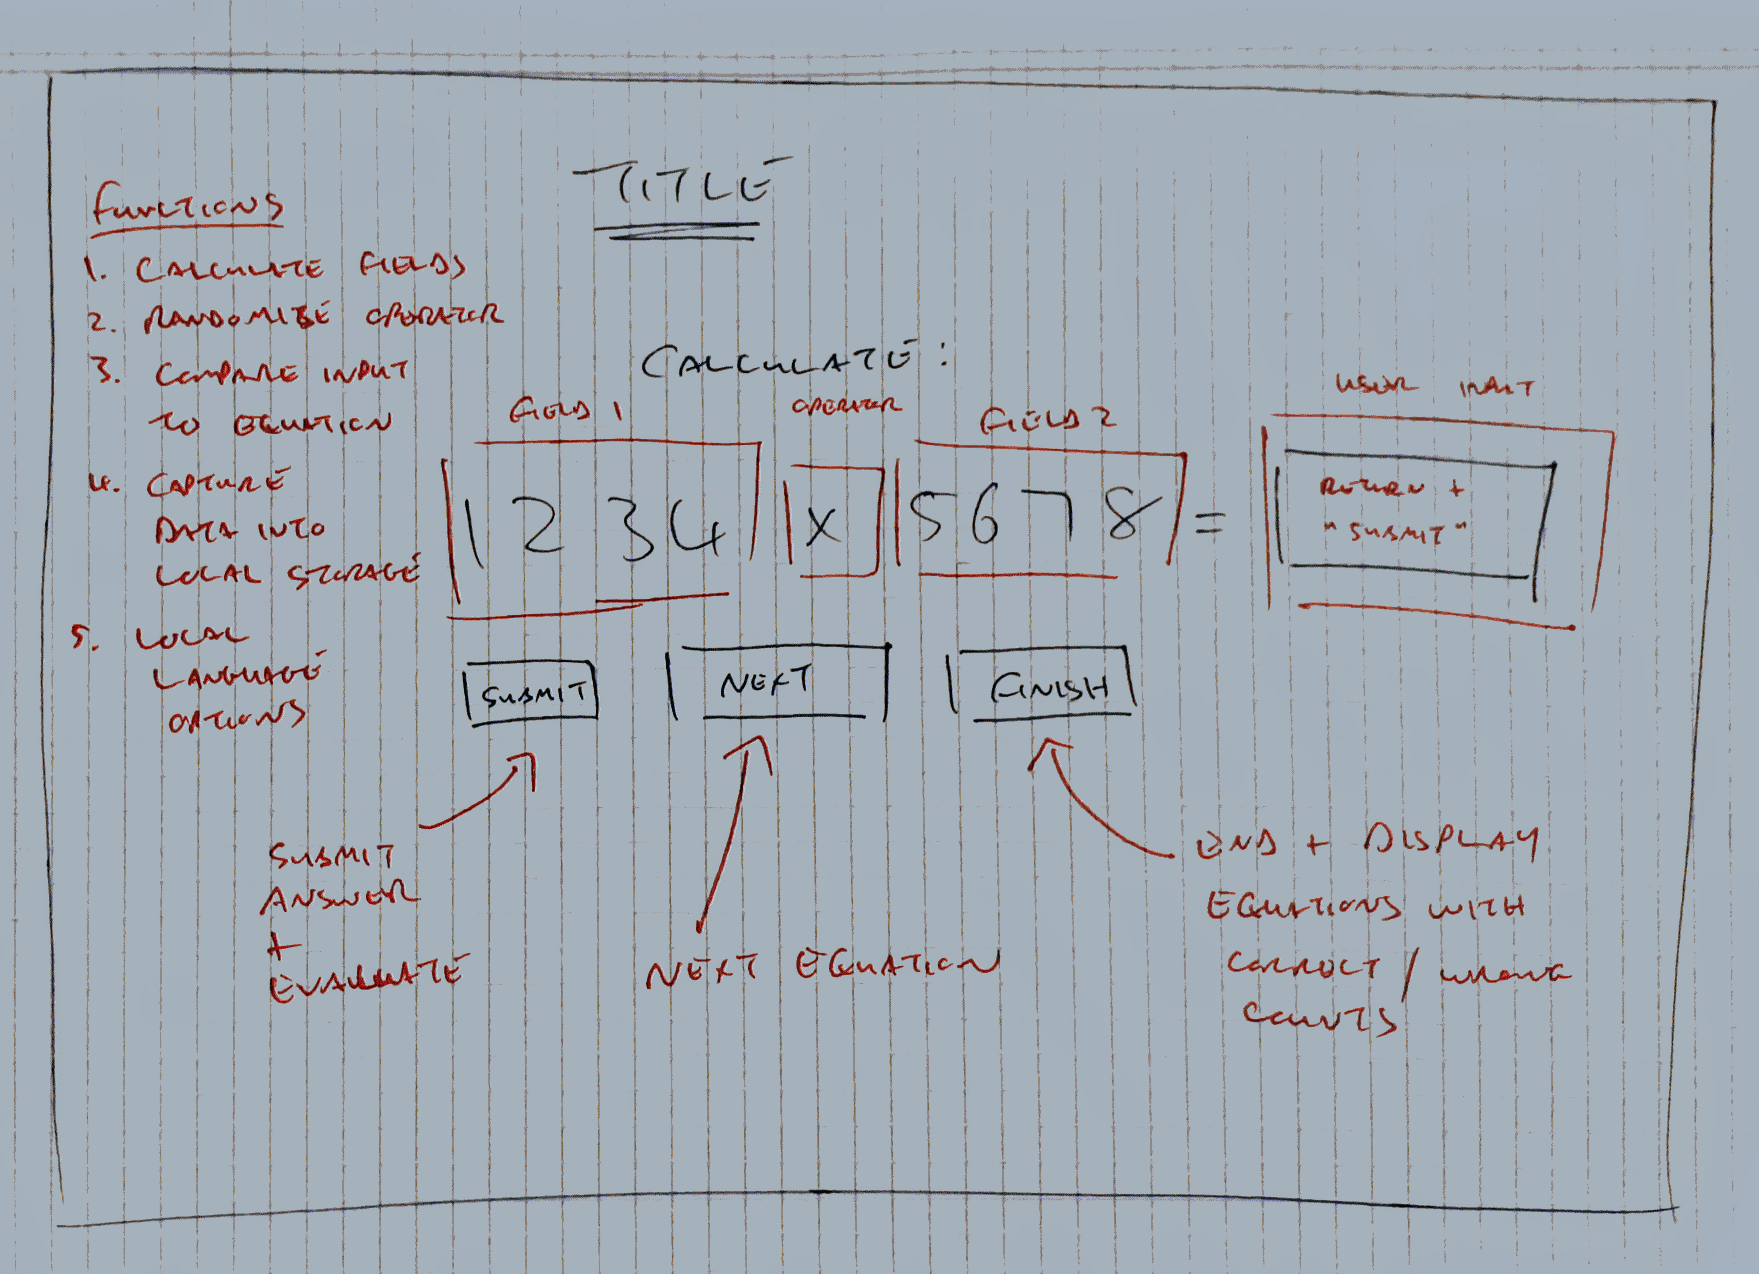 TITLE
FUNCTIONS
1. CALCULATE FIELDS
2. RANDOMISE OPERATOR
3. COMPARE INPUT
TO EQUATION
4. CAPTURE
DATA INTO
LOCAL STORAGE
5. LOCAL
LANGUAGE
OPTIONS
CALCULATE:
FIELD 1 OPERATOR FIELD 2 USER INPUT
1234 x 5678 =
RETURN +
"SUBMIT"
SUBMIT NEXT FINISH
SUBMIT
ANSWER
+
EVALUATE
NEXT EQUATION
END + DISPLAY
EQUATIONS WITH
CORRECT / WRONG
COUNTS